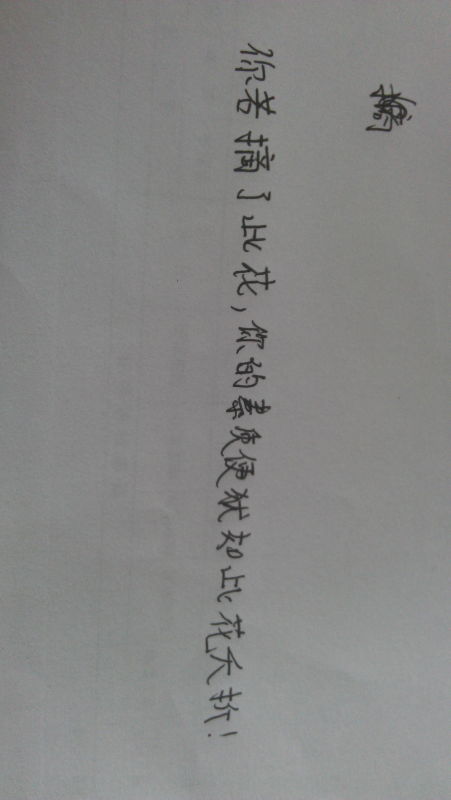 你若摘了此花,你的素质便犹如此花夭折!